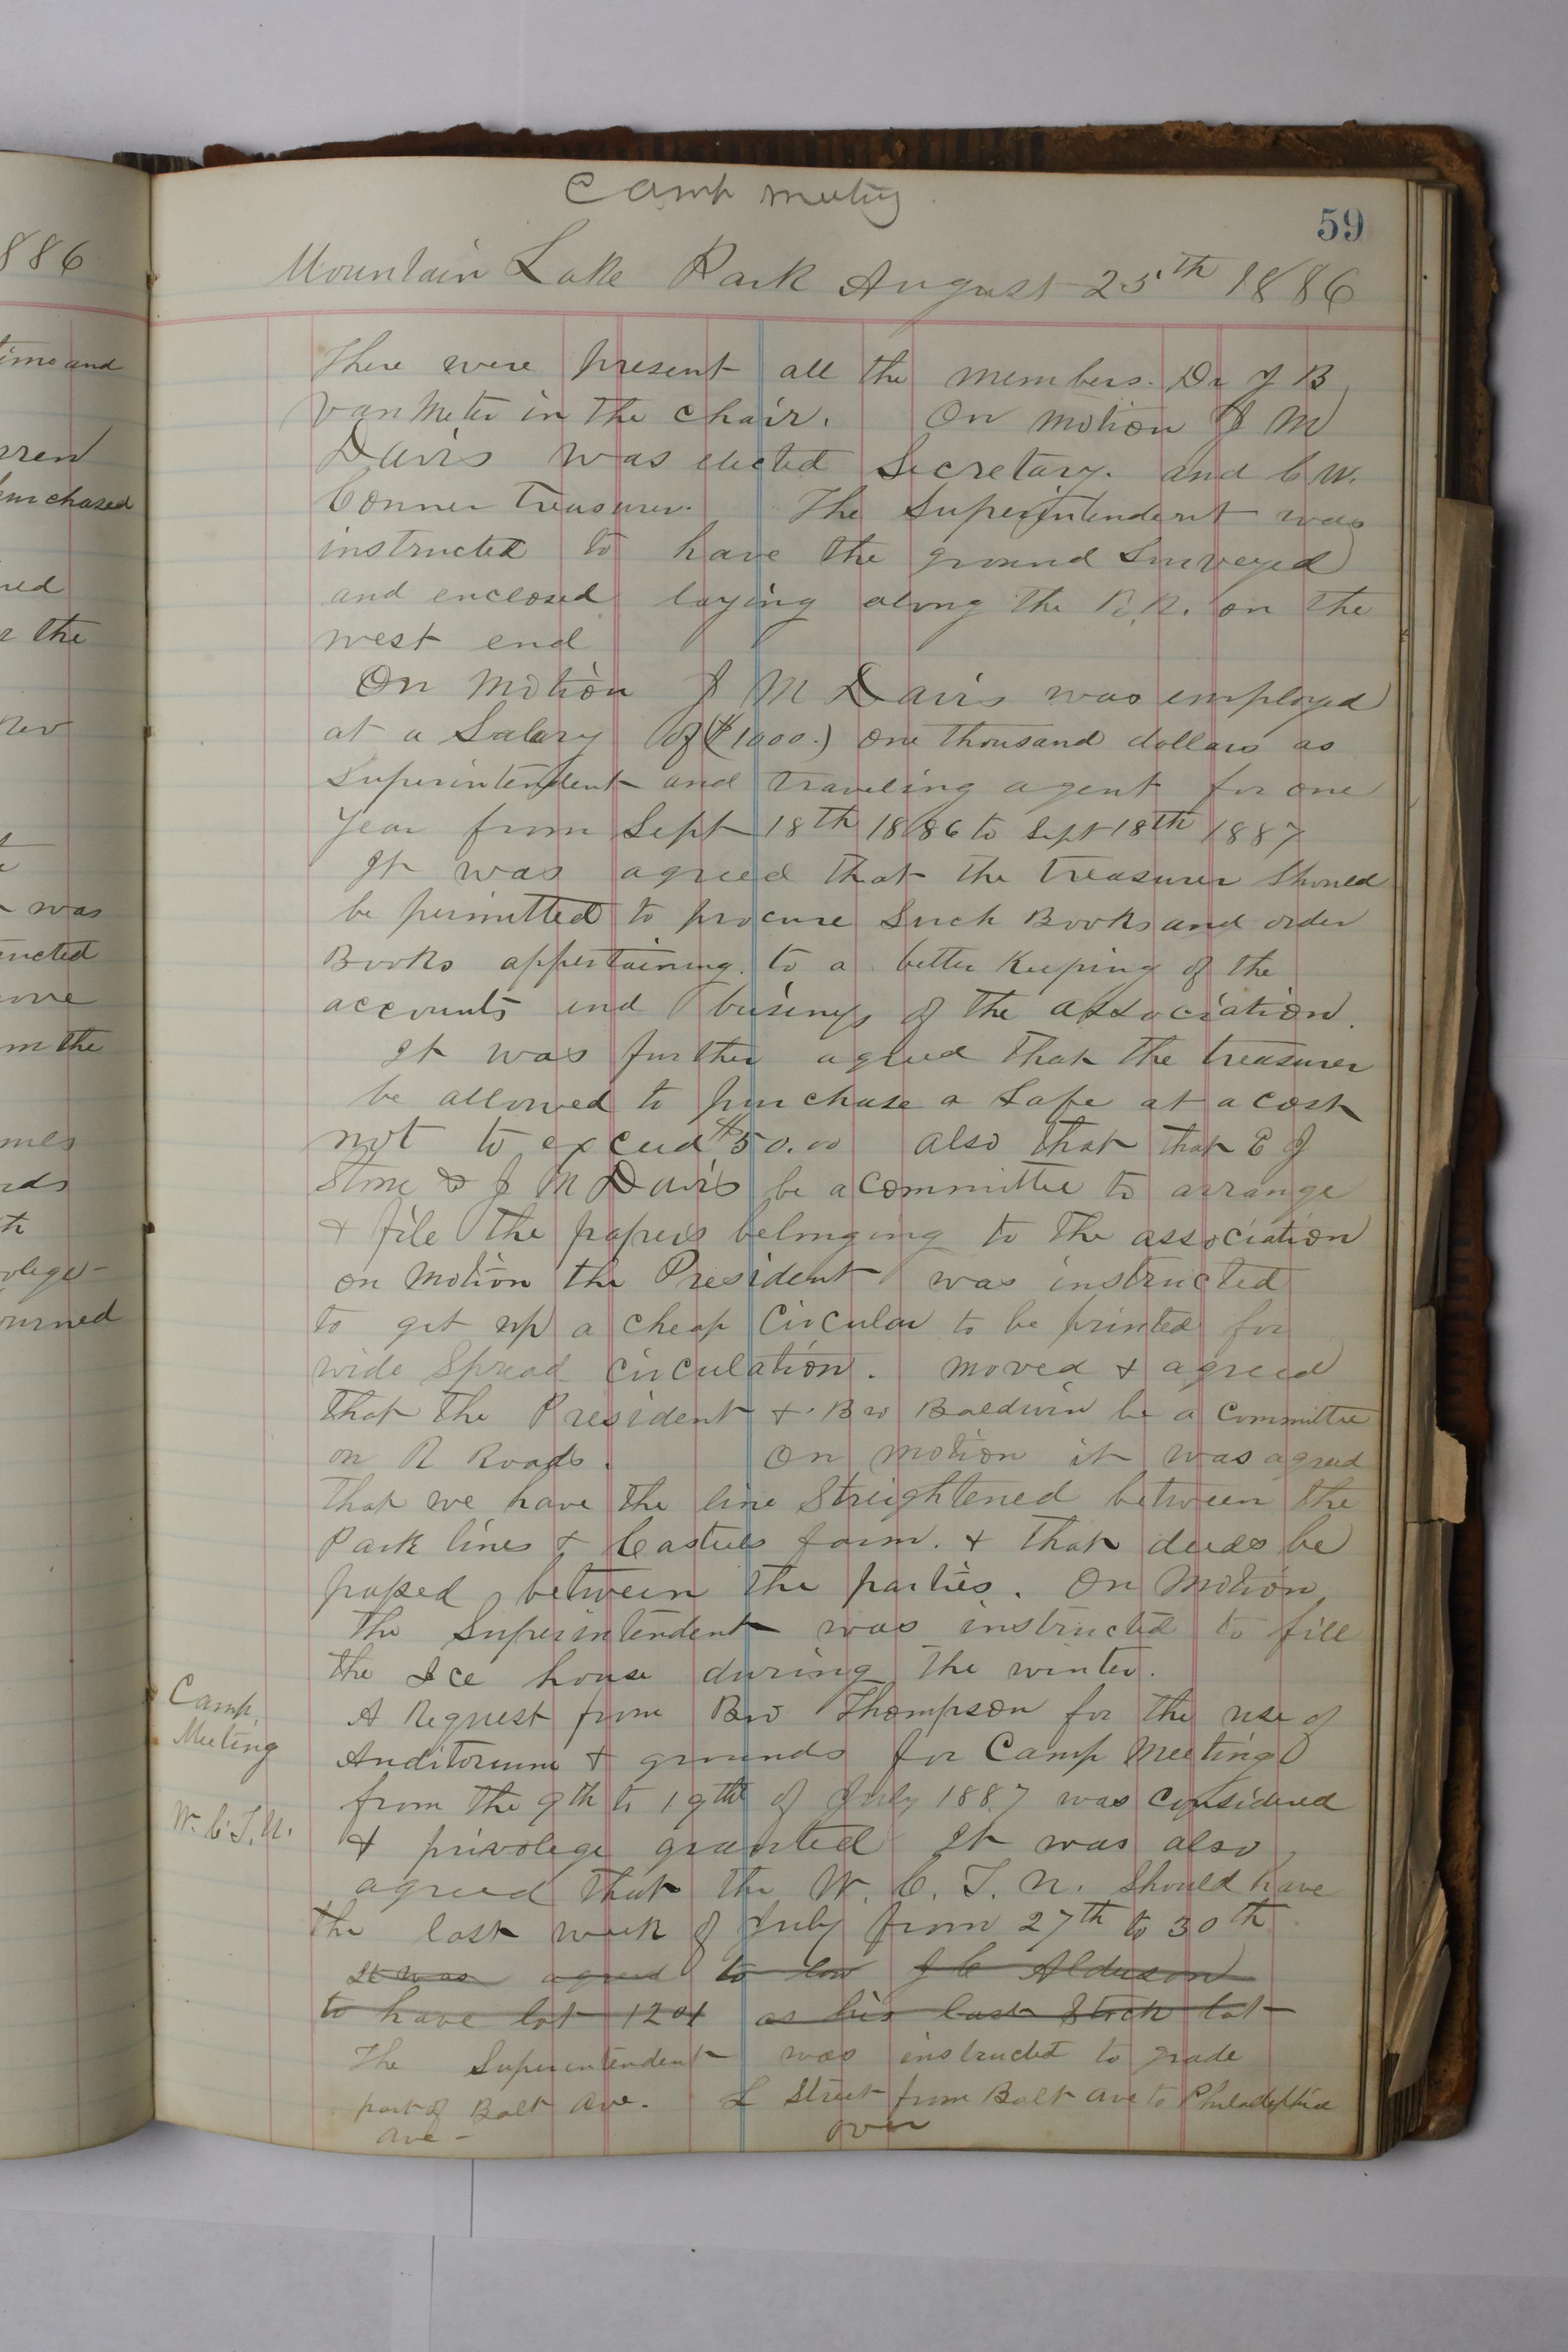 886
time and
rren
purchased
red
r the
was
ucted
m the
rds
olege-
ourned
Camp Meeting
59
Mountain Lake Park August 25th 1886
There were present all the members. Dr J B
Van Meter in the chair. On motion J M
Davis was elected Secretary. and C W.
Conner Treasurer. The Superintendent was
instructed to have the ground Surveyed
and enclosed laying along the R.R. on the
west end
On Motion J M Davis was employed
at a Salary of ($1000.) One thousand dollars as
Superintendent and traveling agent for one
Year from Sept 18th 1886 to Sept 18th 1887
It was agreed that the treasurer Should
be permitted to procure Such Books and order
Books appertaining to a better Keeping of the
accounts and business of the association.
It was further agreed that the treasurer
be allowed to purchase a Safe at a cost
not to exceed $50.00 also that that E J
Stone & J M Davis be a committee to arrange
& file the papers belonging to the association
on Motion the President was instructed
to get up a cheap Circular to be printed for
wide Spread Circulation. moved & agreed
that the President & Bro Baldwin be a Committee
on R Roads. On motion it was agreed
that we have the line Streightened between the
Park lines & Casteels farm. & that deeds be
passed between the parties. On Motion
The Superintendent was instructed to fill
the Ice house during the winter.
Camp
Meeting
A Request from Bro Thompson for the use of
Auditorium & grounds for Camp Meeting
from the 9th to 19th of July 1887 was considered
W. C. T. U.
& privolege granted It was also
agreed that the W. C. T. U. Should have
the last week of July from 27th to 30th
It was agreed to J C Alderson
to have lot 1204 as his last Stock lot
The Superintendent was instructed to grade
part of Balt Ave. L Street from Balt ave to Philadelphia
ave -
over